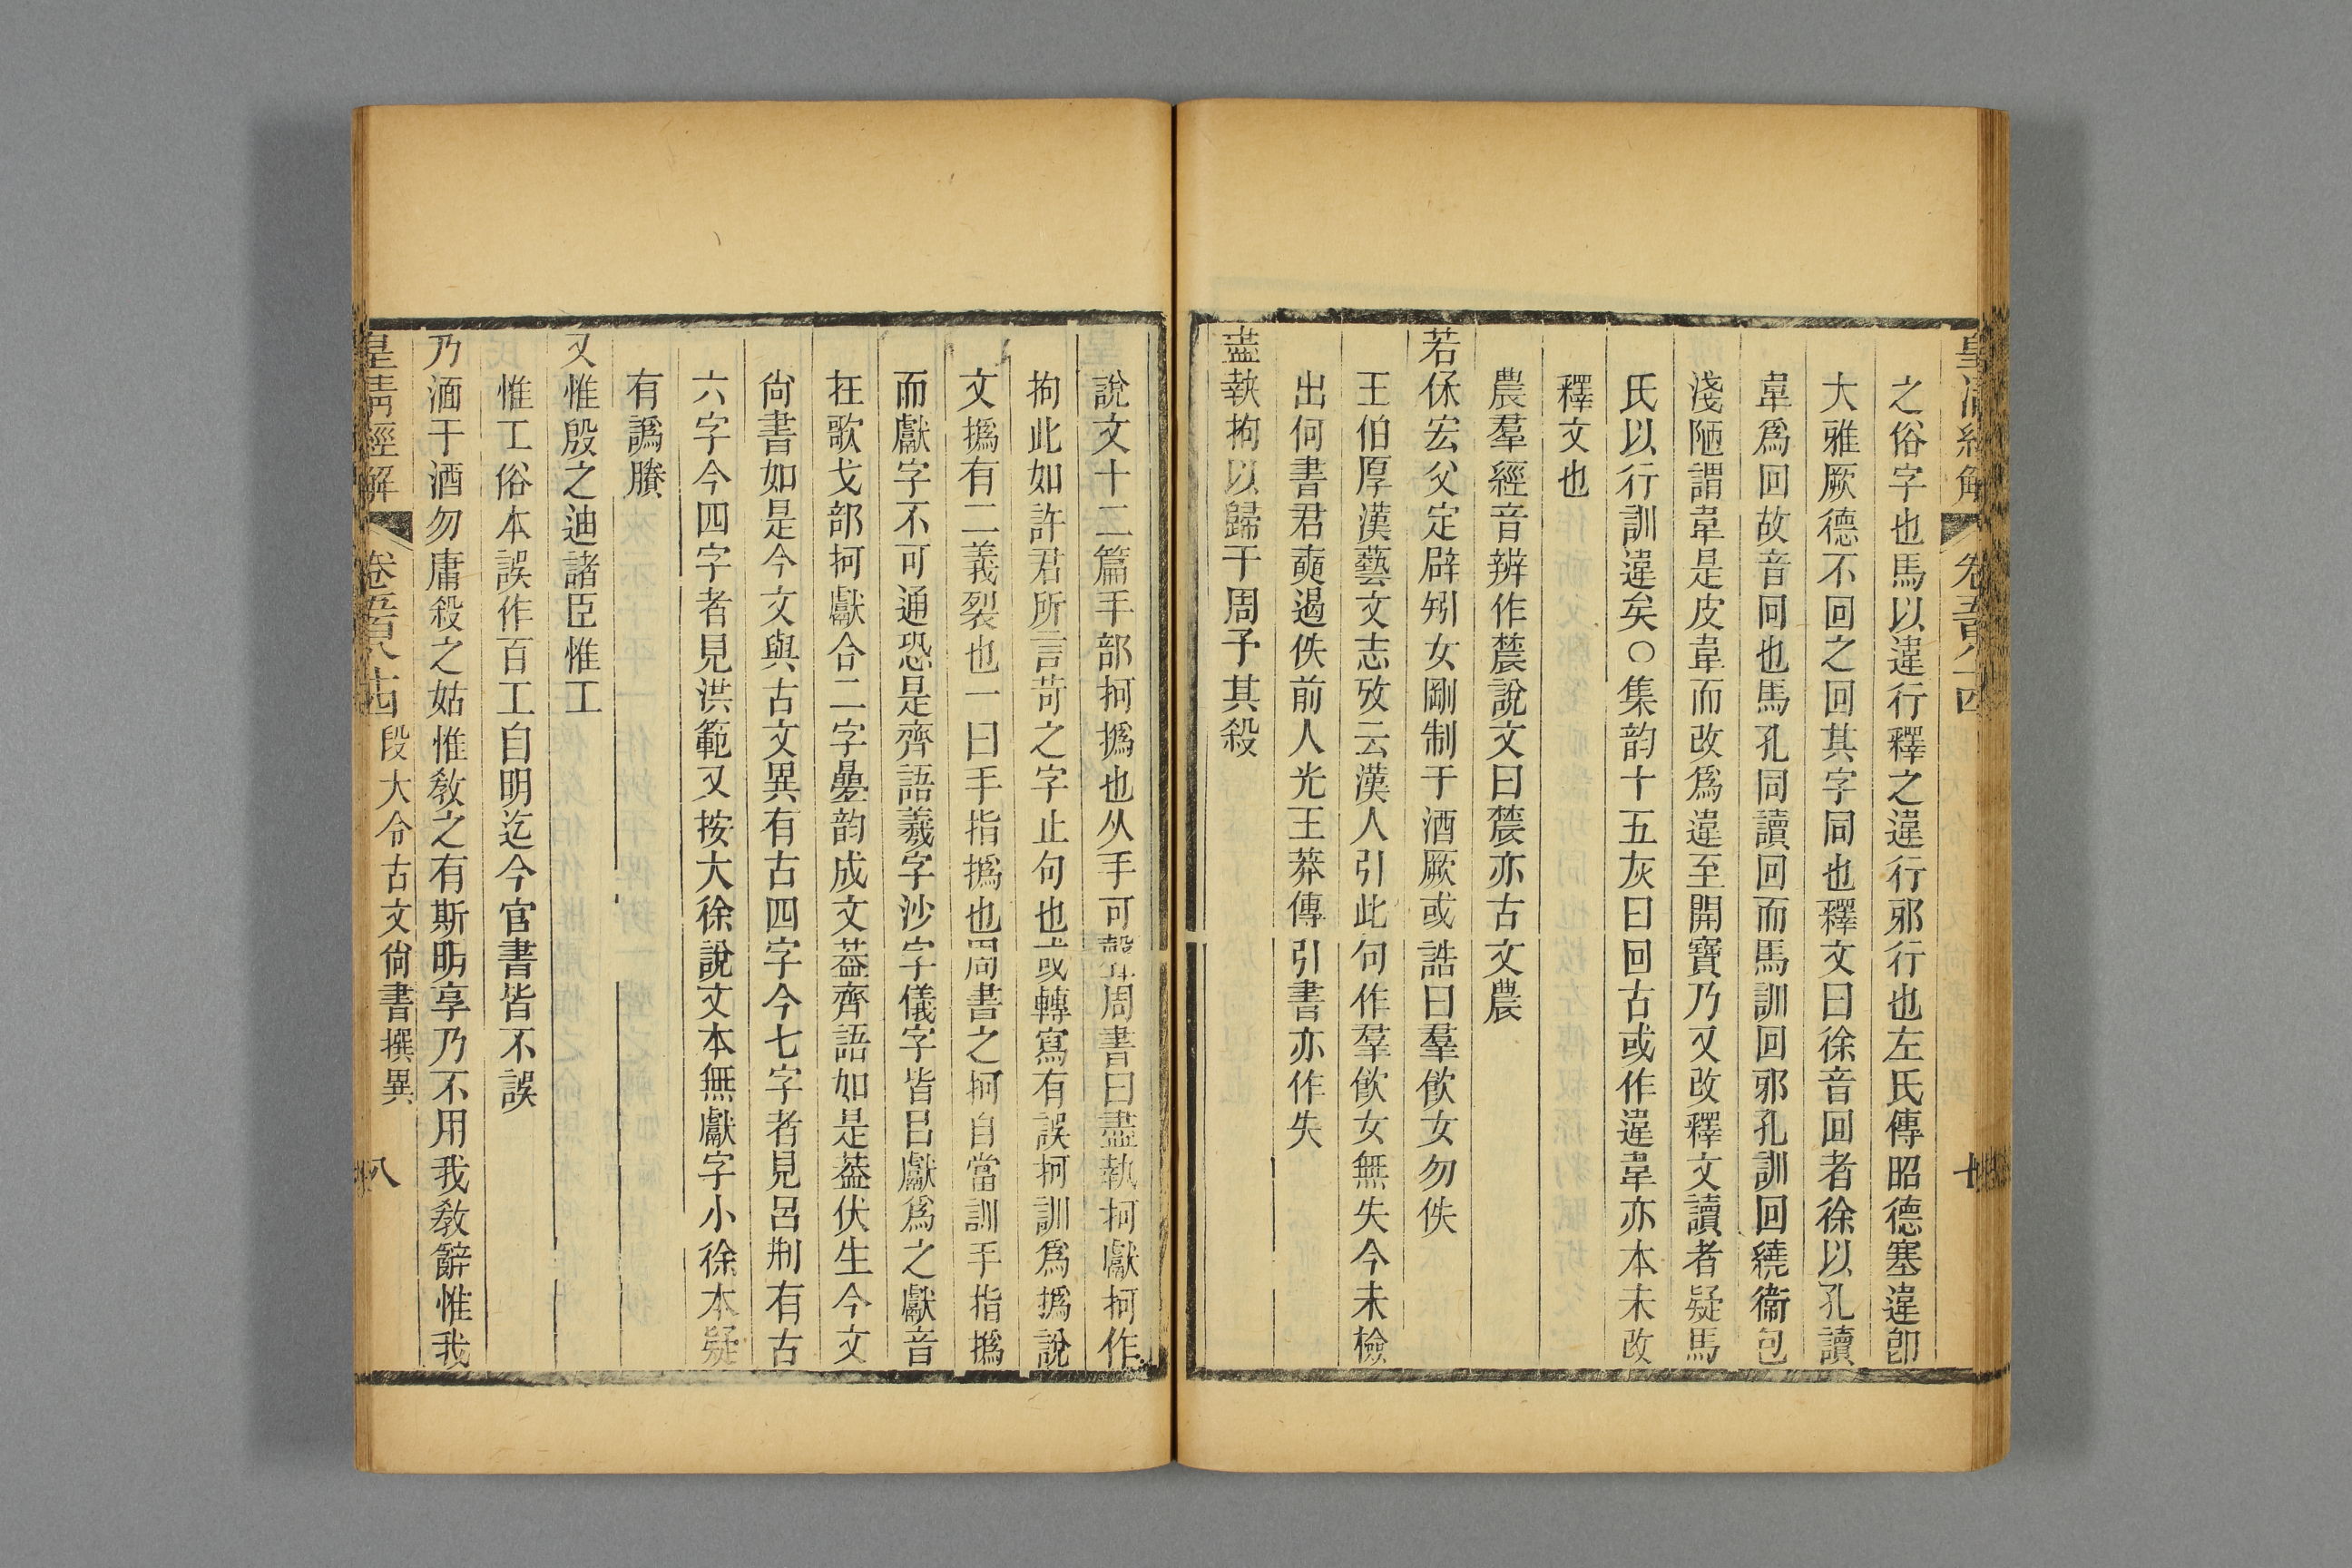 皇清經解 卷五百八十四
之俗字也馬以違行釋之違行邪行也左氏傳昭德塞違卽
大雅厥德不回之回其字同也釋文曰徐音回者徐以孔讀
韋爲回故音回也馬孔同讀回而馬訓回邪孔訓回繞衞包
淺陋謂韋是皮韋而改爲違至開寶乃又改釋文讀者疑馬
氏以行訓違矣○集韵十五灰曰回古或作違韋亦本未改
釋文也
農羣經音辨作䢉說文曰䢉亦古文農
若保宏父定辟矧女剛制于酒厥或誥曰羣飮女勿佚
王伯厚漢藝文志攷云漢人引此句作羣飮女無失今未檢
出何書君奭遏佚前人光王莽傳引書亦作失
盡執拘以歸于周予其殺
說文十二篇手部抲撝也从手可聲周書曰盡執抲獻抲作
拘此如許君所言苛之字止句也或轉寫有誤抲訓爲撝說
文撝有二義裂也一曰手指撝也周書之抲自當訓手指撝
而獻字不可通恐是齊語羲字沙字儀字皆㠯獻爲之獻音
在歌戈部抲獻合二字曡韵成文葢齊語如是葢伏生今文
尙書如是今文與古文異有古四字今七字者見呂刑有古
六字今四字者見洪範又按大徐說文本無獻字小徐本疑
有譌賸
又惟殷之迪諸臣惟工
惟工俗本誤作百工自明迄今官書皆不誤
乃湎于酒勿庸殺之姑惟敎之有斯明享乃不用我敎辭惟我
皇淸經解 卷五百八十四 段大令古文尙書撰異 八